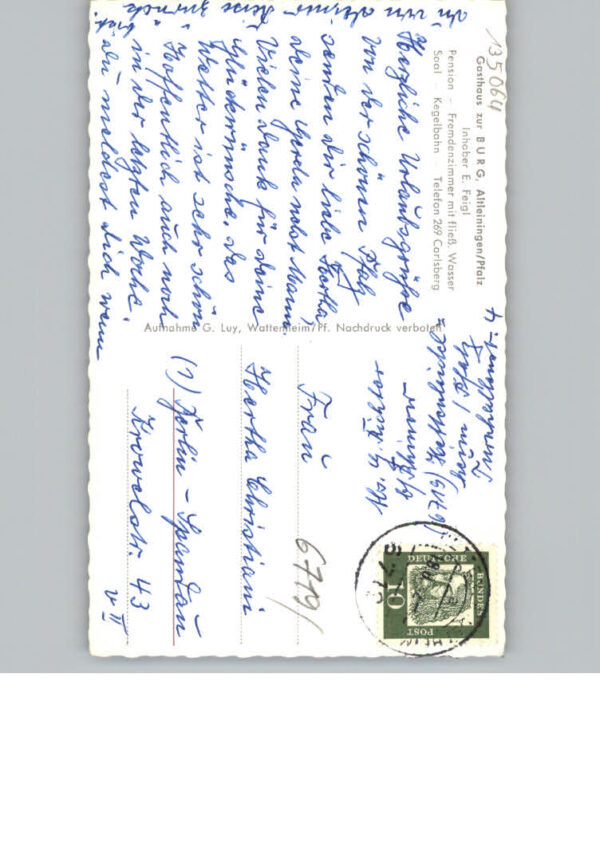 135064
Gasthaus zur BURG, Altleiningen/Pfalz
Inhaber E. Feigl
Pension - Fremdenzimmer mit fließ. Wasser
Saal - Kegelbahn - Telefon 269 Carlsberg
Herzliche Urlaubsgrüße
von der schönen Pfalz
senden dir liebe Hertha,
deine Gerda nebst Mann.
Vielen Dank für deine
Glückwünsche. Das
Wetter ist sehr schön
Hoffentlich auch noch
in der letzten Woche.
du meldest dich wenn
du von deiner Reise zurück
bist
Aufnahme G. Luy, Wattenheim/Pf. Nachdruck verboten
(6719)
DEUTSCHE BUNDESPOST
10
6719/
Frau
Hertha Christiani
(1) Berlin - Spandau
43
v II